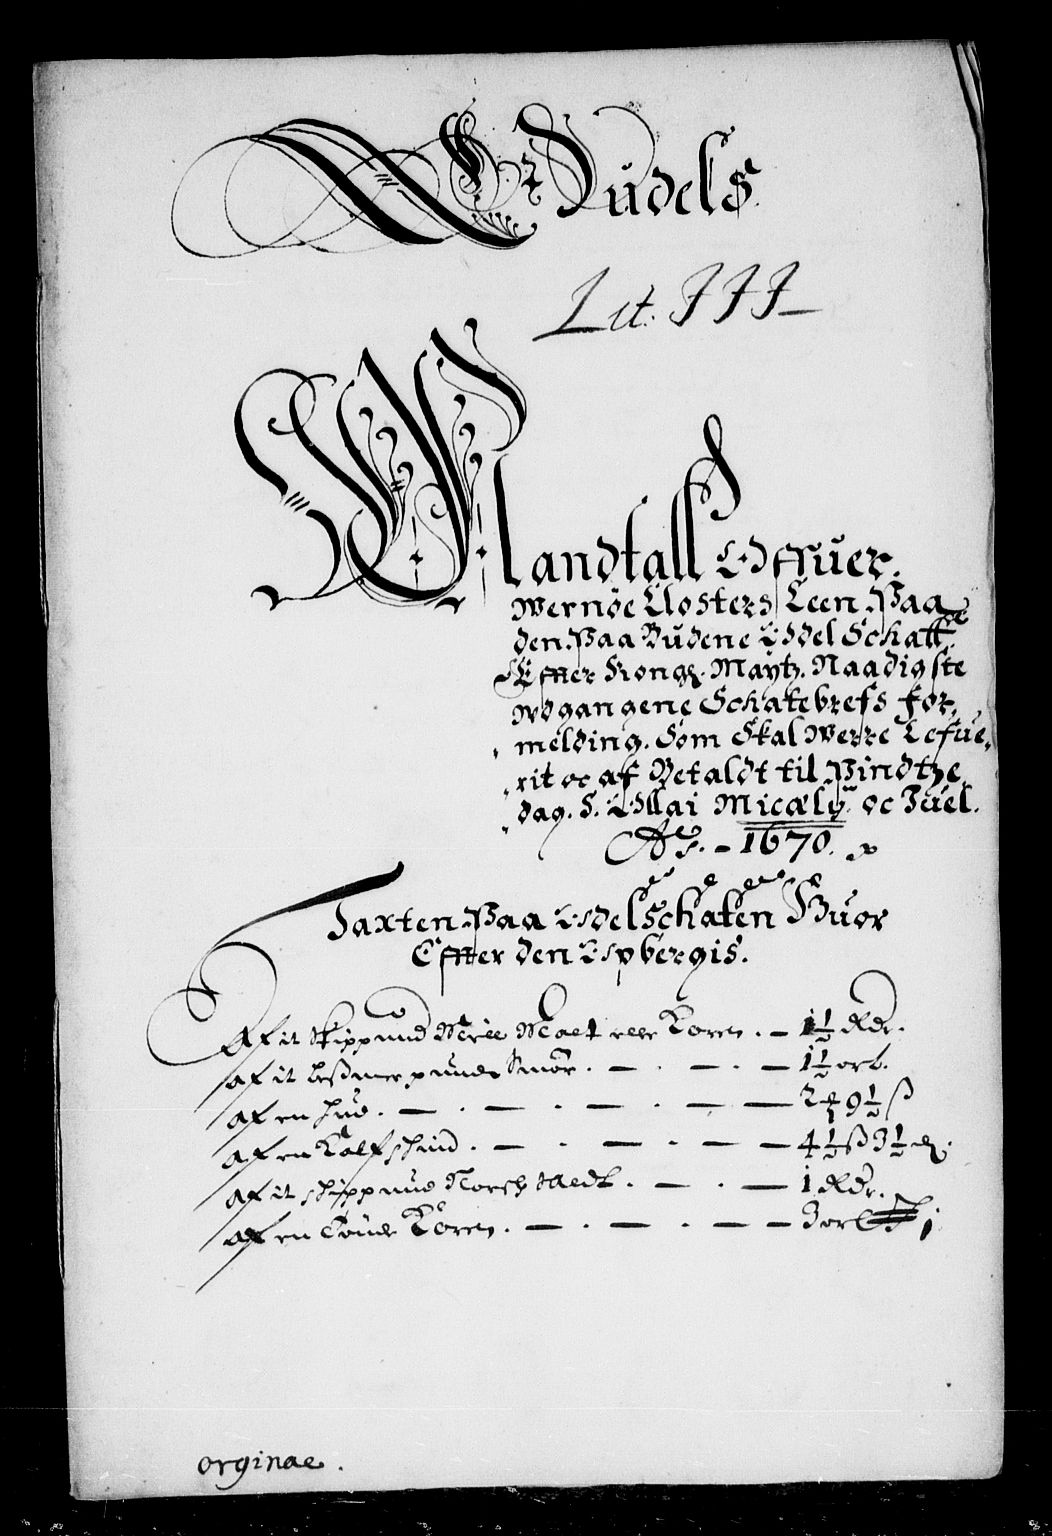 Rudels
Lit. JJJ
Mandtall Offuer
Wernöe Closters Leen Paa
den Paa Budene Odel Schatt
Effter Kong: Maytz. Naadigste
Wdgangene Schatebrefs for,
melding. Som Skal Werre Lefue,
rit oc af Betaldt til Pindtze
dag. S. Ollai Micæly oc Juel.
Ao. 1670.
Taxten Paa Odelschaten Huor
Effter den Opbergis.
Af it Skippund Miel Malt eller Koren. 1½ Rdr.
af it bessmer pund Smør. 1½ ort.
af en hud. 9½ ß
af en Kalfskind. 4½ ß 3½
af it skippund Torsk 1 Rdr.
af en Tønde Koren. 3 ort
orginae.